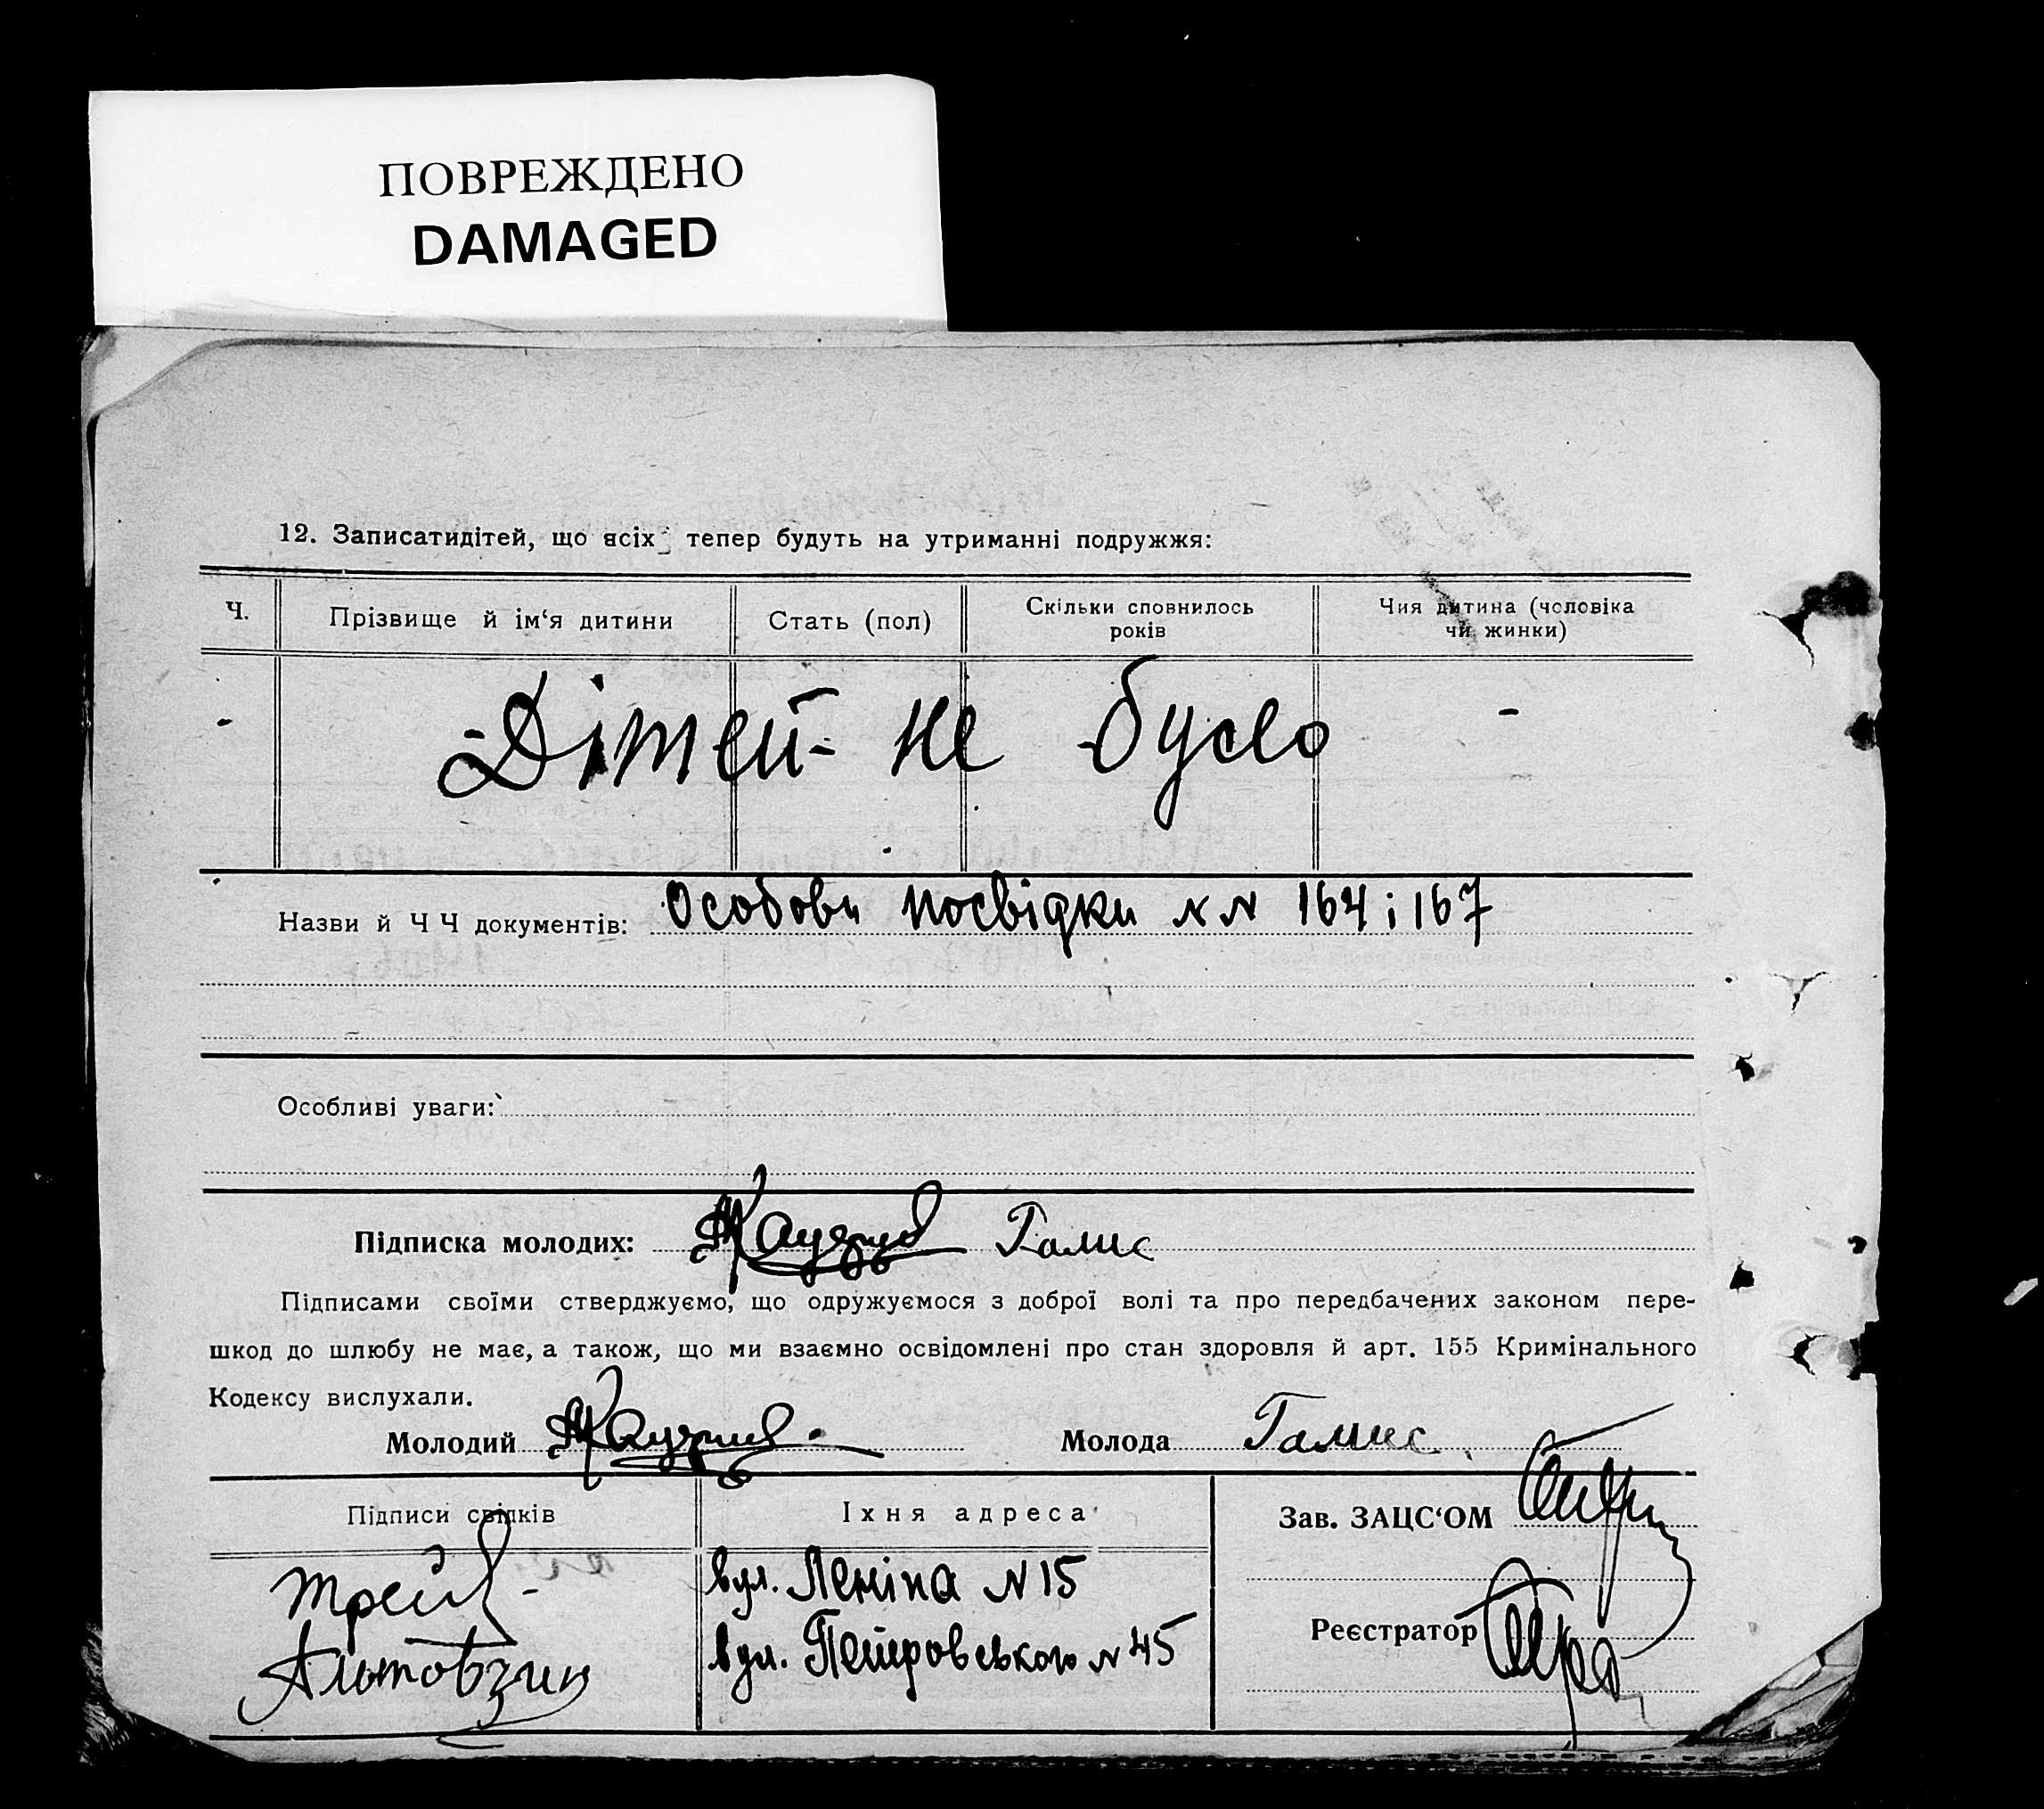 ПОВРЕЖДЕНО
DAMAGED
12. Записатидітей, що всіх тепер будуть на утриманні подружжя:
Ч. Прізвище й ім‘я дитини Стать (пол) Скільки сповнилось років Чия дитина (чоловіка чи жинки)
- Дітей - не було -
Назви й Ч Ч документів: Особови посвідки N N 164 і 167
Особливі уваги:
Підписка молодих: Гамис
Підписами своїми стверджуємо, що одружуємося з доброї волі та про передбачених законом пере-
шкод до шлюбу не має, а також, що ми взаємно освідомлені про стан здоровля й арт. 155 Кримінального
Кодексу вислухали.
Молодий Молода Гамис
Підписи свідків Їхня адреса Зав. ЗАЦС‘ОМ
вул. Леніна N 15
Реєстратор
вул. Петровського N 45